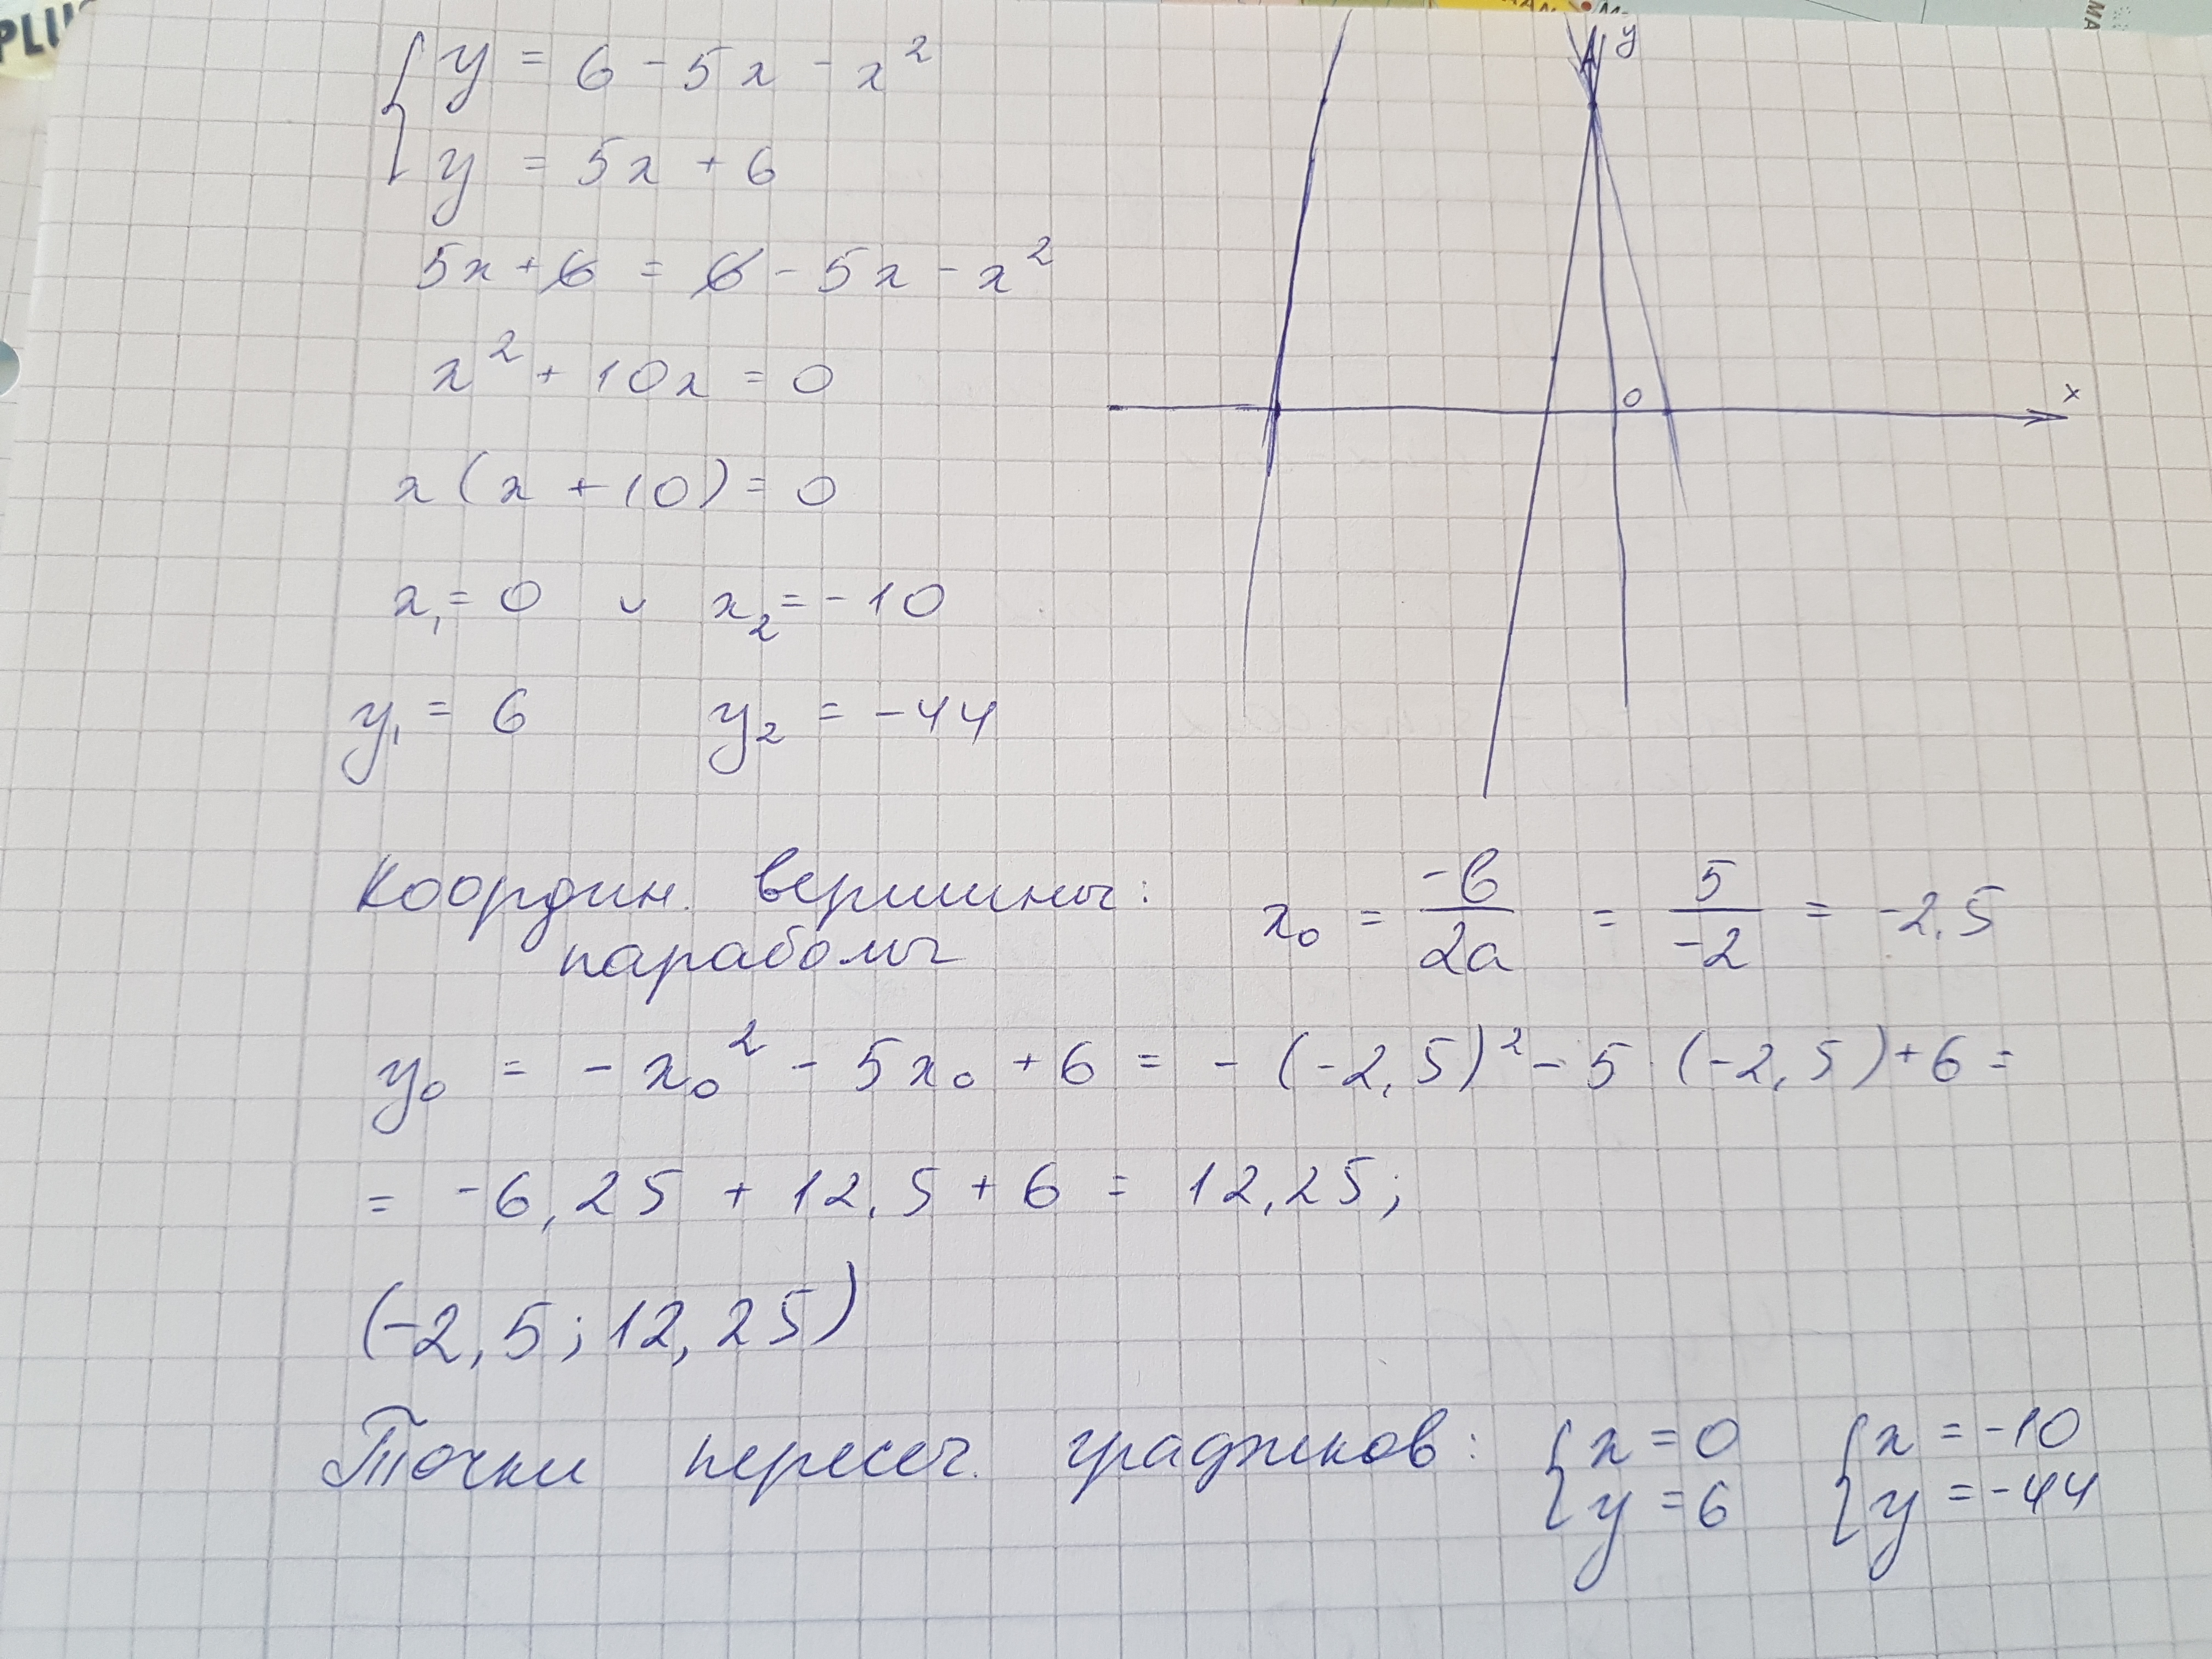 PLU
y = 6 - 5x - x²
y = 5x + 6
5x + 6 = 6 - 5x - x²
x² + 10x = 0
x (x + 10) = 0
x₁ = 0 и x₂ = -10
y₁ = 6 y₂ = -44
y
0
x
Коордиn. вершины: x₀ = -b/2a = 5/-2 = -2,5
параболы
y₀ = - x₀² - 5x₀ + 6 = - (-2,5)² - 5 · (-2,5) + 6 =
= -6,25 + 12,5 + 6 = 12,25;
(-2,5; 12,25)
Точки пересеч. графиков: { x = 0 { x = -10
y = 6 y = -44